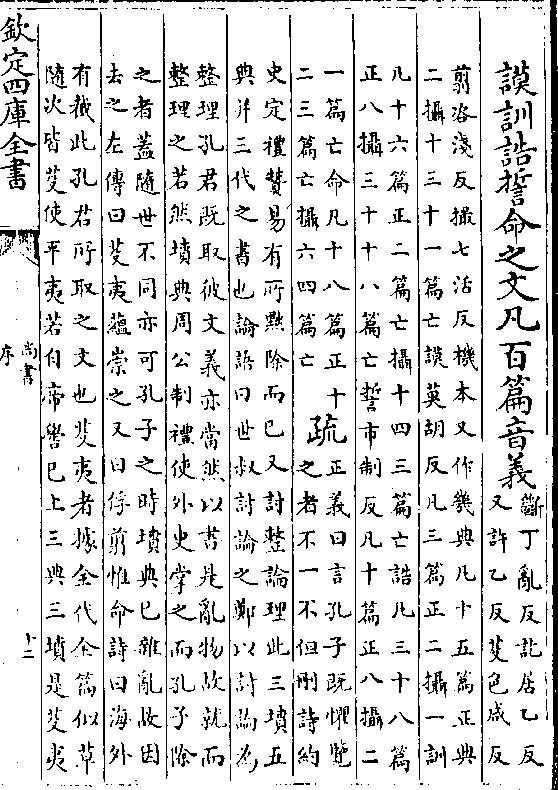 謨訓誥誓命之文凡百篇音義
斷丁亂反訖居乙反
又許乙反芟色咸反
翦咨淺反撮七活反機本又作幾典凡十五篇正典
二攝十三十一篇亡謨莫胡反凡三篇正二攝一訓
凡十六篇正二篇亡攝十四三篇亡誥凡三十八篇
正八攝三十十八篇亡誓市制反凡十篇正八攝二
一篇亡命凡十八篇正十
二三篇亡攝六四篇亡
疏
正義曰言孔子既懼覽
之者不一不但刪詩約
史定禮贊易有所黜除而已又討整論理此三墳五
典并三代之書也論語曰世叔討論之鄭以討論為
整理孔君既取彼文義亦當然以書是亂物故就而
整理之若然墳典周公制禮使外史掌之而孔子除
之者蓋隨世不同亦可孔子之時墳典已雜亂故因
去之左傳曰芟夷蘊崇之又曰俘翦惟命詩曰海外
有截此孔君所取之文也芟夷者據全代全篇似草
隨次皆芟使平夷若自帝嚳已上三典三墳是芟夷
欽定四庫全書
尚書
序
十二